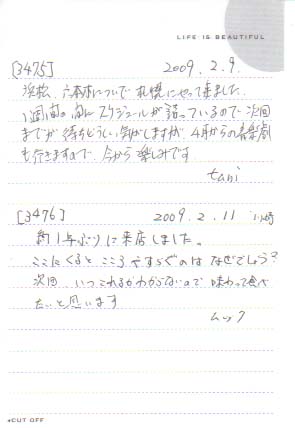 LIFE IS BEAUTIFUL
[3475] 2009.2.9.
浜松、六本木について 札幌にやって来ました。
1週間の間にスケジュールが詰っているので 次回
までが 待ちどうしい気がしますが 4月からの音楽劇
も行きますので 今から楽しみです
tani
[3476] 2009.2.11
約1年ぶりに来店しました。
ここにくると こころやすらぐのは なぜでしょう?
次回 いつこれるかわからないので 味わって食べ
たいと思います
ムック
CUT OFF